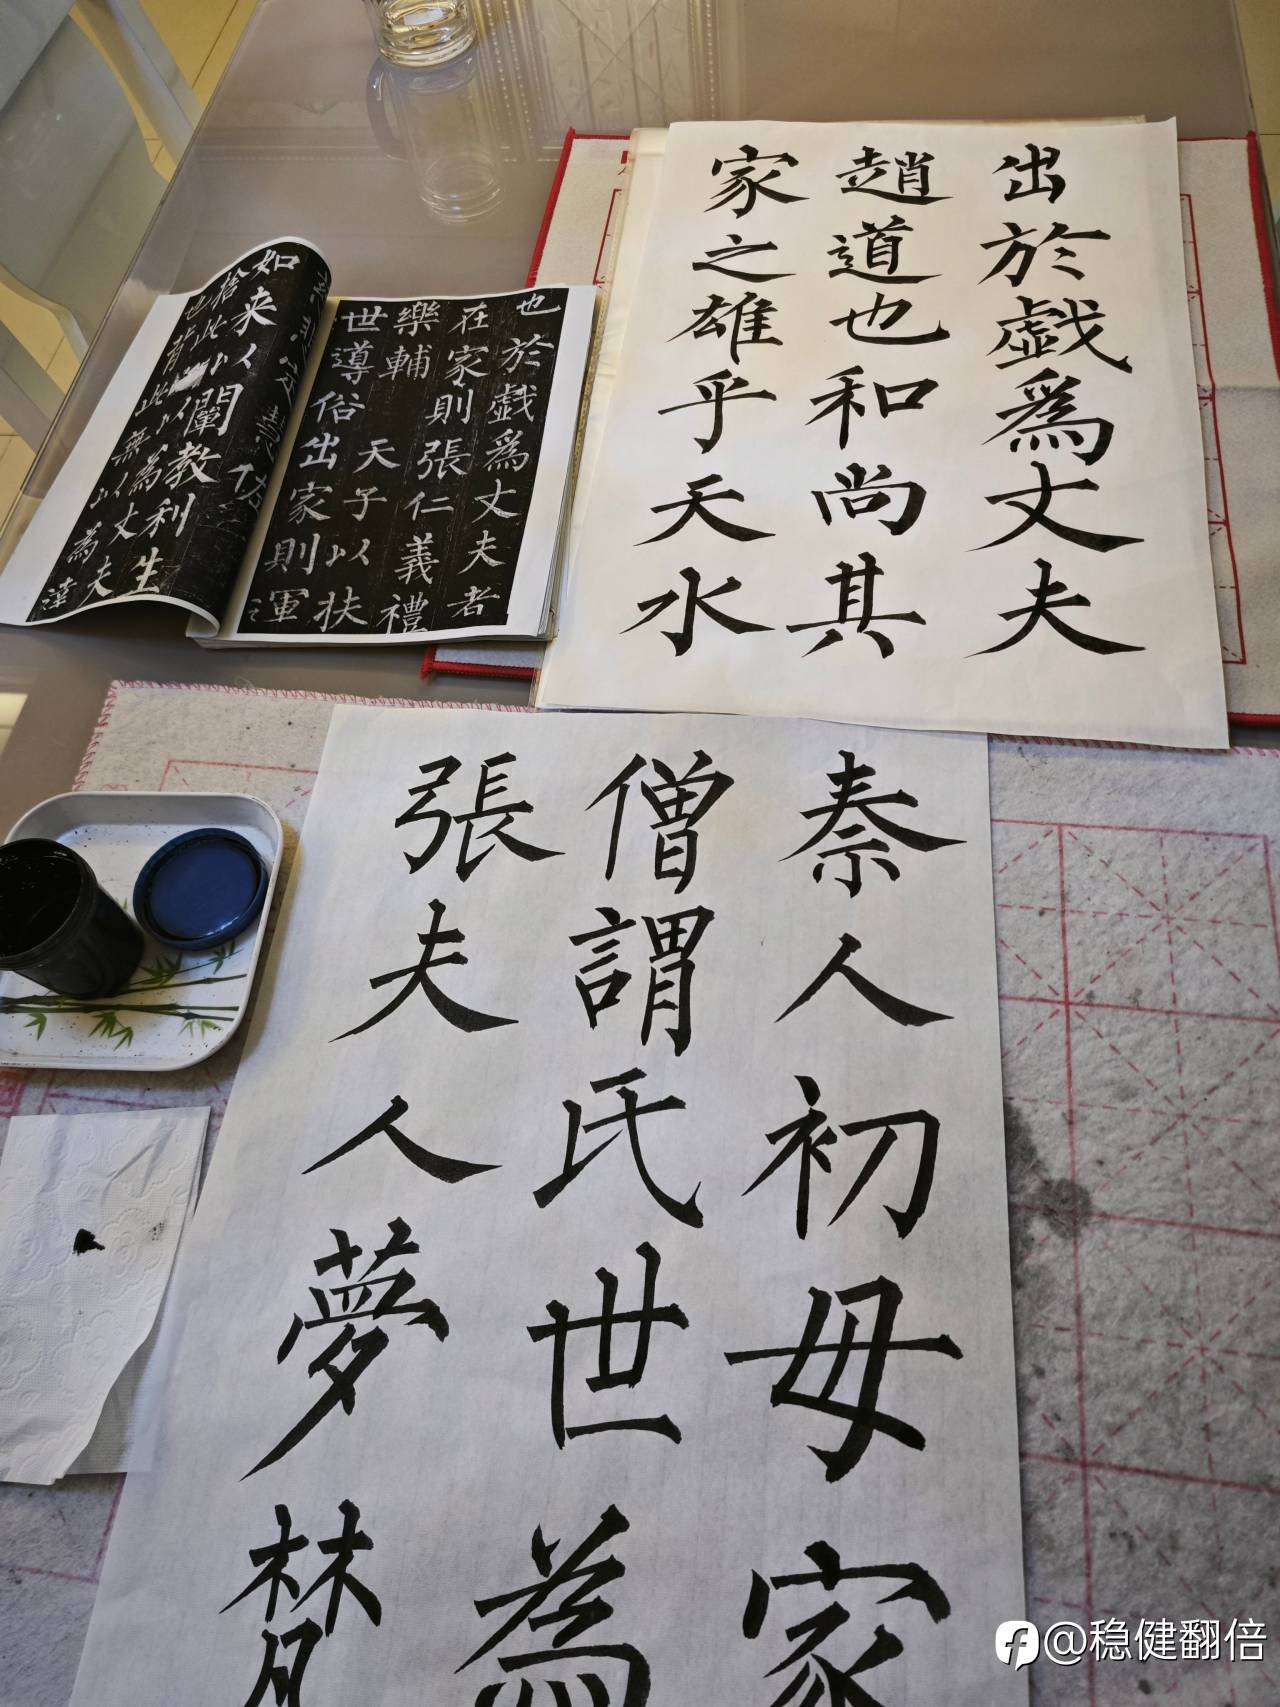 出於戱爲丈夫
趙道也和尚其
家之雄乎天水
也於戱爲丈夫者
在家則張仁義禮
樂輔天子以扶
世導俗出家則運
如來以闡教利生
捨此
以為丈夫
也背此無以為達
秦人初母家
僧謂氏世為
張夫人夢梵
@稳健翻倍